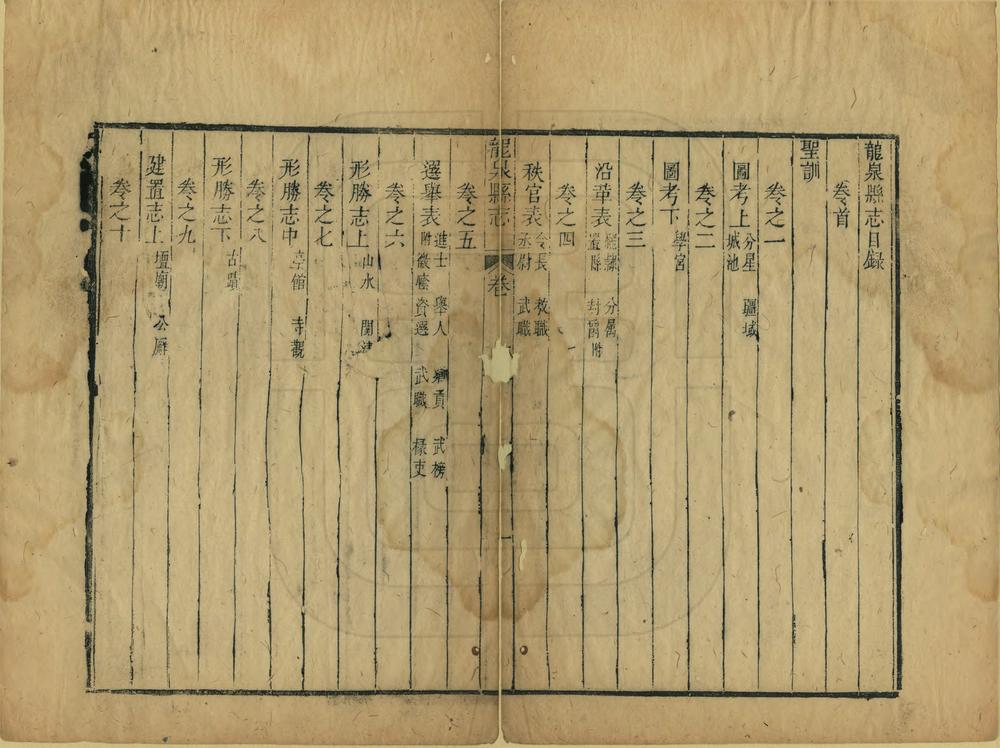 龍泉縣志目録
卷首
聖訓
卷之一
圖考上 分星 疆域 城池
卷之二
圖考下 學宮
卷之三
沿革表 分屬 置縣 封爵附
卷之四
秩官表 令長 教職 丞尉 武職
龍泉縣志 卷 一
卷之五
選舉表 進士 舉人 鄉貢 武榜 附徵辟 資選 武職 椽吏
卷之六
形勝志上 山水 関津
卷之七
形勝志中 亭館 寺觀
卷之八
形勝志下 古蹟
卷之九
建置志上 壇廟 公廨
卷之十